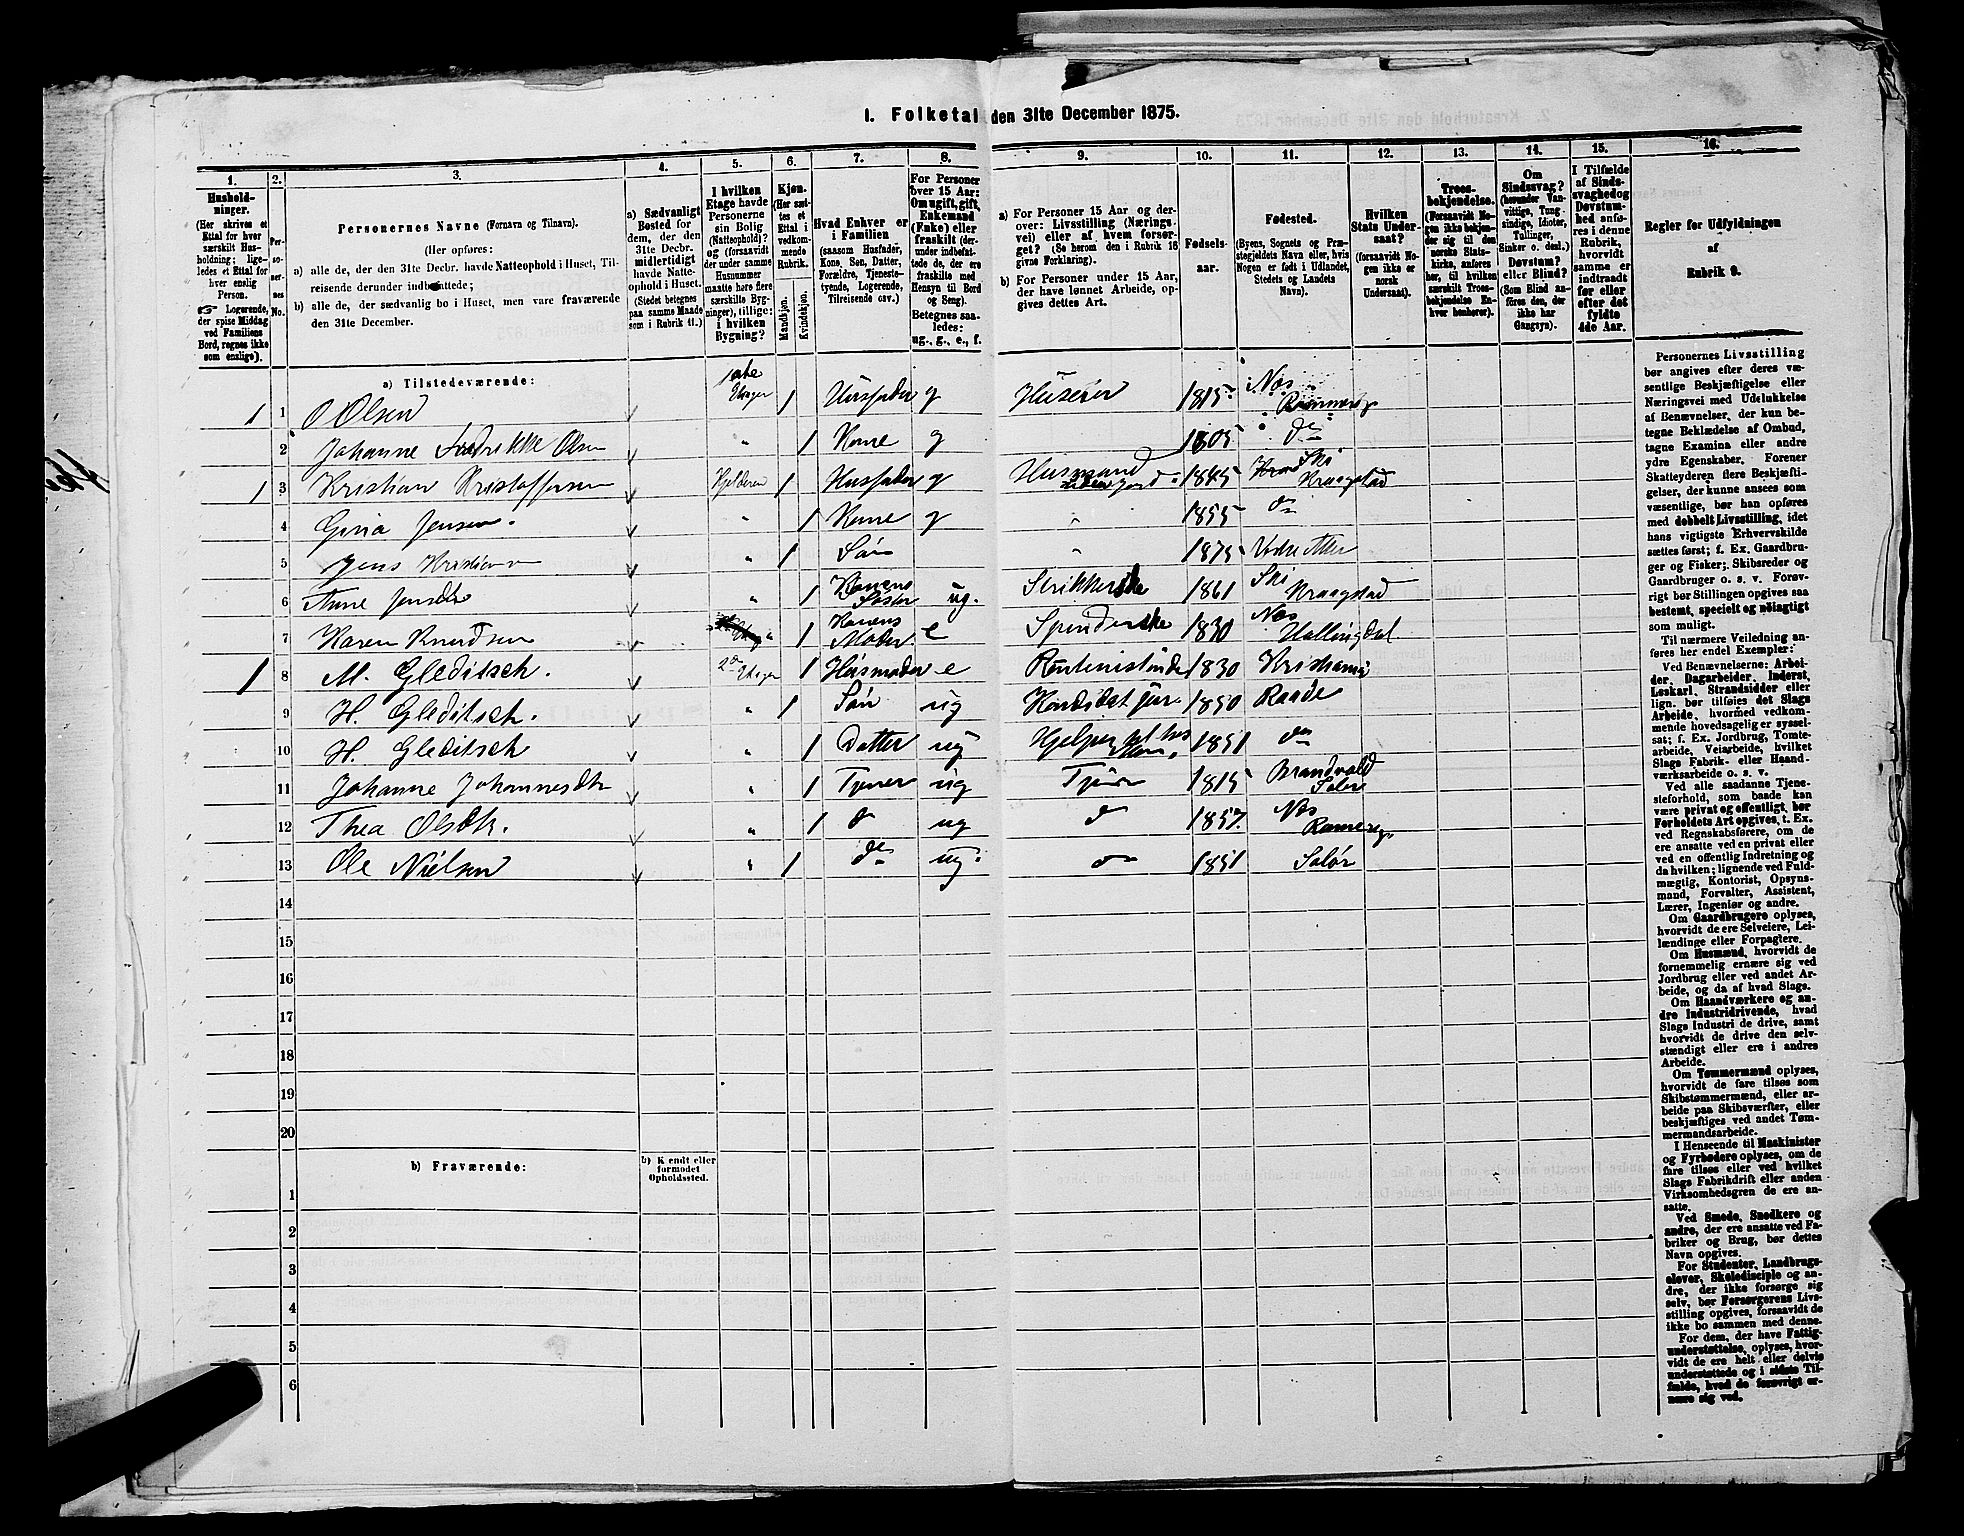 1. Folketal den 31te December 1875.
1. 2. 3. 4. 5. 6. 7. 8. 9. 10. 11. 12. 13. 14. 15. 16.
Hushold-
ninger.
(Her skrives et
Ettal for hver
særskilt Hus-
holdning; lige-
ledes et Ettal for
hver enslig
Person.
☞ Logerende,
der spise Middag
ved Familiens
Bord, regnes ikke
som enslige).
Personernes No.
Personernes Navne (Fornavn og Tilnavn).
(Her opføres:
a) alle de, der den 31te Decbr. havde Natteophold i Huset, Til-
reisende derunder indbefattede;
b) alle de, der sædvanlig bo i Huset, men vare fraværende
den 31te December.
a) Sædvanligt
Bosted for
dem, der den
31te Decbr.
midlertidigt
havde Natte-
ophold i Huset.
(Stedet betegnes
paa samme Maade
som i Rubrik 11.)
I hvilken
Etage havde
Personerne
sin Bolig
(Natteophold)?
(forsaavidt
der under samme
Husnummer
maatte høre flere
særskilte Byg-
ninger), tillige:
i hvilken
Bygning?
Kjøn.
(Her sæt-
tes et
Ettal i
vedkom-
mende
Rubrik.
Mandkjøn.
Kvindekjøn.
Hvad Enhver er
i Familien
(saasom Husfader,
Kone, Søn, Datter,
Forældre, Tjeneste-
tyende, Logerende,
Tilreisende osv.)
For Personer
over 15 Aar:
Om ugift, gift,
Enkemand
(Enke) eller
fraskilt (der-
under indbefat-
tede de, der ere
fraskilte med
Hensyn til Bord
og Seng).
Betegnes saa-
ledes:
ug., g., e., f.
a) For Personer 15 Aar og der-
over: Livsstilling (Nærings-
vei) eller af hvem forsør-
get? (Se herom den i Rubrik 16
givne Forklaring).
b) For Personer under 15 Aar,
der have lønnet Arbeide, op-
gives dettes Art.
Fødsels-
aar.
Fødested.
(Byens, Sognets og Præ-
stegjeldets Navn eller, hvis
Nogen er født i Udlandet,
Stedets og Landets
Navn).
Hvilken
Stats Under-
saat?
(forsaavidt No-
gen ikke er
norsk
Undersaat).
Troes-
bekjendelse.
(Forsaavidt No-
gen ikke bekjen-
der sig til den
norske Stats-
kirke, anføres
her, til hvilken
særskilt Troes-
bekjendelse En-
hver henhører).
Om
Sindssvag?
(herunder Van-
vittige, Tung-
sindige, Idioter,
Tullinger,
Sinker o. desl.)
Døvstum?
eller Blind?
(Som Blind an-
føres den, der
ikke har
Gangsyn).
I Tilfælde
af Sinds-
svaghed og
Døvstum-
hed anfø-
res i denne
Rubrik,
hvorvidt
samme er
indtraadt
før eller
efter det
fyldte
4de Aar.
Regler for Udfyldningen
af
Rubrik 9.
a) Tilstedeværende:
1 1 O Olsen 1ste Etager 1 Husfader g Huseier 1815 Næs Romerige
2 Johanne Fredrikke Olsen " 1 Kone g 1805 do
1 3 Kristian Kristoffersen Kjelderen 1 Husfader g Husmand uden Jord 1845 Ski Kraagstad
4 Gina Jensen. " 1 Kone g " 1855 do
5 Jens Kristian " 1 Søn " 1875 Vestre Aker
6 Anne Jensdtr " 1 Konens Søster ug. Strikkerske 1861 Ski Kraagstad
7 Karen Knudsen " 1 Konens Moder e Spinderske 1830 Næs Hallingdal
1 8 M. Gleditsch. 2den Etager 1 Husmoder e Rentenistinde 1830 Kristiania
9 H. Gleditsch. " 1 Søn ug Kandidat jur. 1850 Raade
10 H. Gleditsch " 1 Datter ug Hjelper til hos Moren 1851 do
11 Johanne Johannesdtr " 1 Tjener ug Tjener 1815 Brandvold Solør
12 Thea Olsdtr. " 1 do ug do 1857. Næs Romerige
13 Ole Nielsen " 1 do ug. do 1851 Solør
14
15
16
17
18
19
20
b) Fraværende:
b) Kjendt eller
formodet
Opholdssted.
1
2
3
4
5
6
Personernes Livsstilling
bør angives efter deres væ-
sentlige Beskjæftigelse eller
Næringsvei med Udelukkelse
af Benævnelser, der kun be-
tegne Beklædelse af Ombud,
tagne Examina eller andre
ydre Egenskaber. Forener
Skatteyderen flere Beskjæfti-
gelser, der kunne ansees som
væsentlige, bør han opføres
med dobbelt Livsstilling, idet
hans vigtigste Erhvervskilde
sættes først; f. Ex. Gaardbru-
ger og Fisker; Skibsreder og
Gaardbruger o. s. v. Forøv-
rigt bør Stillingen opgives saa
bestemt, specielt og nøiagtigt
som muligt.
Til nærmere Veiledning an-
føres her endel Exempler:
Ved Benævnelserne: Arbei-
der, Dagarbeider, Inderst,
Løskarl, Strandsidder eller
lign. bør tilføies det Slags
Arbeide, hvormed vedkom-
mende hovedsagelig er syssel-
sat; f. Ex. Jordbrug, Tomte-
arbeide, Veiarbeide, hvilket
Slags Fabrik- eller Haand-
værksarbeide o. s. v.
Ved alle saadanne Tjene-
steforhold, som baade kan
være privat og offentligt, bør
Forholdets Art opgives, t. Ex.
ved Regnskabsførere, om de
ere ansatte ved en privat eller
ved en offentlig Indretning og
da hvilken; lignende ved Fuld-
mægtig, Kontorist, Opsyns-
mand, Forvalter, Assistent,
Lærer, Ingeniør og andre.
Om Gaardbrugere oplyses,
hvorvidt de ere Selveiere, Lei-
lændinge eller Forpagtere.
Om Husmænd, hvorvidt de
fornemmelig ernære sig ved
Jordbrug eller ved andet Ar-
beide, og da af hvad Slags.
Om Haandværkere og an-
dre Industridrivende, hvad
Slags Industri de drive, samt
hvorvidt de drive den selv-
stændigt eller ere i andres
Arbeide.
Om Tømmermænd oplyses,
hvorvidt de fare tilsøs som
Skibstømmermænd, eller ar-
beide paa Skibsværfter, eller
beskjæftiges ved andet Tøm-
mermandsarbeide.
I Henseende til Maskinister
og Fyrbødere oplyses, om de
fare tilsøs eller ved hvilket
Slags Fabrikdrift eller anden
Virksomhedsgren de ere an-
satte.
Ved Smede, Snedkere og
andre, der ere ansatte ved Fa-
briker og Brug, bør dettes
Navn opgives.
For Studenter, Landbrugs-
elever, Skoledisciple og an-
dre, der ikke forsørge sig
selv, bør Forsørgerens Livs-
stilling opgives, forsaavidt de
ikke bo sammen med denne.
For dem, der have Fattig-
understøttelse, oplyses, hvor-
vidt de ere helt eller delvis
understøttede og i sidste Til-
fælde, hvad de forøvrigt er-
nære sig ved.